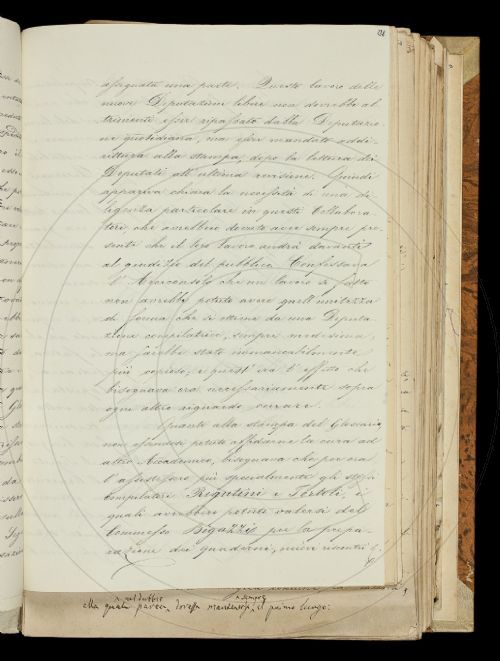 assegnata una parte. Questo lavoro delle
nuove Deputazioni libere non dovrebbe al
trimenti esser ripassato dalla Deputazio
ne quotidiana, ma esser mandato addi
rittura alla stampa, dopo la lettura dei
Deputati all'ultima revisione. Quindi
appariva chiara la necessità di una di
ligenza particolare in questi Collabora
tori che avrebbero dovuto aver sempre pre
sente che il loro lavoro andrà davanti
al giudizio del pubblico. Confessava
l'Arciconsolo che un lavoro sì fatto
non avrebbe potuto avere quell'unitezza
di forma che si ottiene da una Deputa
zione compilatrice, sempre medesima,
ma sarebbe stato immancabilmente
più corioso, e quest'era l'effetto che
bisognava ora necessariamente sopra
ogni altro riguardo curare.
Quanto alla stampa del Glossario,
non essendosi potuta affidarne la cura ad
altro Accademico, bisognava che per ora
l'assistessero più specialmente gli stessi
compilatori Rigutini e Tortoli, i
quali avrebbero potuto valersi del
Commesso Bigazzi per la prepa
razione dei quaderni, invii riscontri
nel dubbio sempre
alla quale pareva dovesse mantenersi il primo luogo: